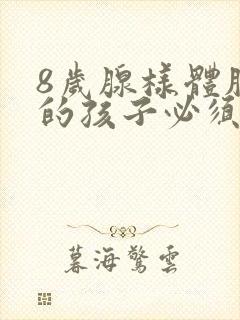 8歲腺樣體肥
的孩子必須
暮海驚雲